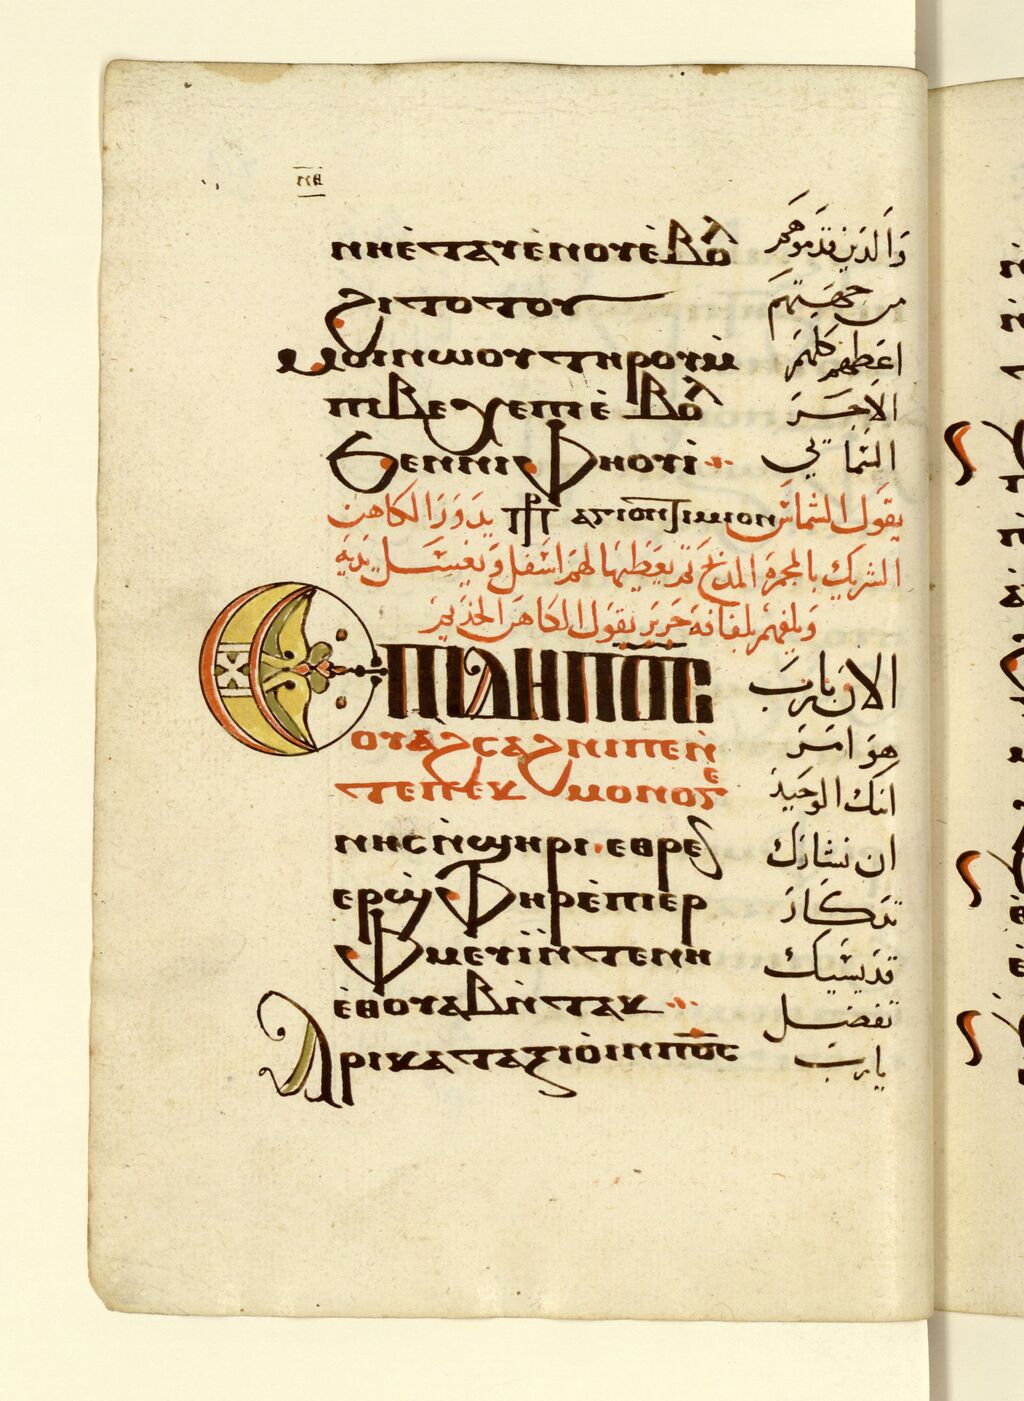 ⲛⲏⲉ̀ⲧⲁⲩⲉ̀ⲛⲟⲩⲉ̀ⲃⲟⲗ
وَالَّذين قدموهم
ϩⲓⲧⲟⲧⲟⲩ
من جهتهم
ⲙⲟⲓⲛⲱⲟⲩⲧⲏⲣⲟⲩⲙ̀
اعطهم كلهم
ⲡⲃⲉⲭⲉⲡⲓⲉ̀ⲃⲟⲗ
الاجر
ϧⲉⲛⲛⲓⲫⲏⲟⲩⲓ̀
السمائي
يقول الشماس ⲁⲅⲓⲟⲛⲥⲓⲙⲱⲛ يدور الكاهن
الشريك بالمجمرة ثم اسفل ويغسل يديه
بلفافة حرير يقول الكاهن
ⲉⲡⲓⲇⲏⲡⲟ̅ⲥ̅
الان يارب
ⲟⲩⲁϩⲥⲁϩⲛⲓⲡⲉⲛ̀
هو امر
ⲧⲉⲡⲉⲕⲙⲟⲛⲟⲅⲉ
ابنك الوحيد
ⲛⲏⲥⲛ̀ϣⲏⲣⲓ ⲉⲑⲣⲉⲛ
ان نشارك
ⲉⲣϣ̀ⲫⲏⲣⲉ̀ⲡⲓⲉⲣ
تذكار
ⲫⲙⲉⲩⲓ̀ⲛ̀ⲧⲉⲛⲏ
قديسيك
ⲉ̀ⲑⲟⲩⲁⲃⲛ̀ⲧⲁⲕ
تفضل
ⲁⲣⲓⲕⲁⲧⲁⲝⲓⲟⲓⲛⲡⲟ̅ⲥ̅
يارب